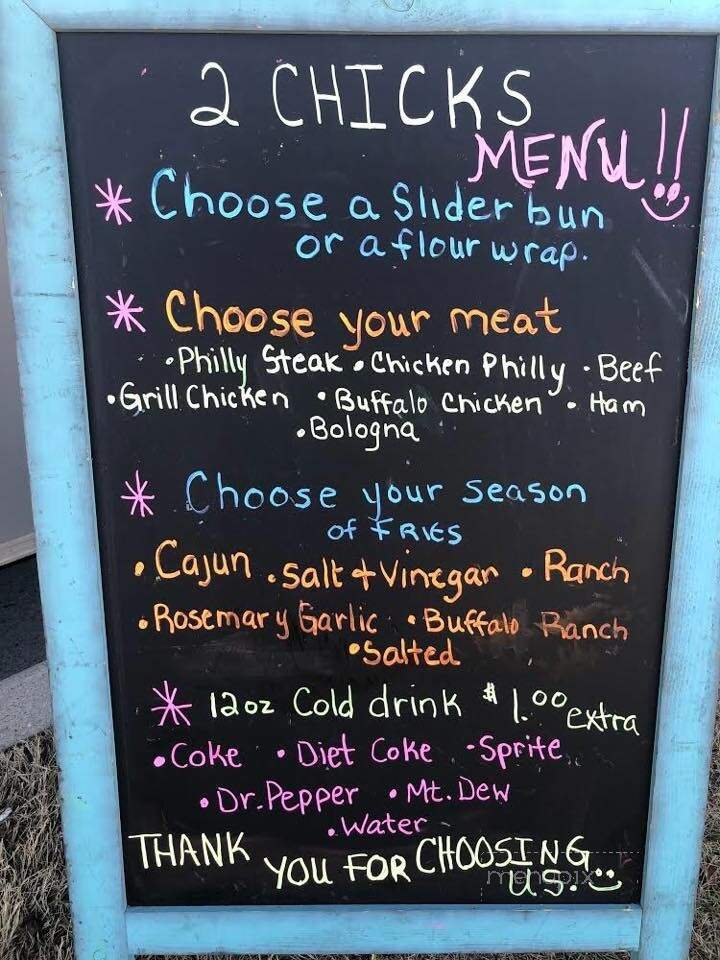 2 CHICKS
MENU!!
* Choose a Slider bun
or a flour wrap.
* Choose your meat
• Philly Steak • Chicken Philly • Beef
• Grill Chicken • Buffalo Chicken • Ham
• Bologna
* Choose your season
of FRIES
• Cajun • Salt + Vinegar • Ranch
• Rosemary Garlic • Buffalo Ranch
• Salted
* 12oz Cold drink $1.00 extra
• Coke • Diet Coke • Sprite
• Dr. Pepper • Mt. Dew
• Water
THANK YOU FOR CHOOSING
US.
menupix